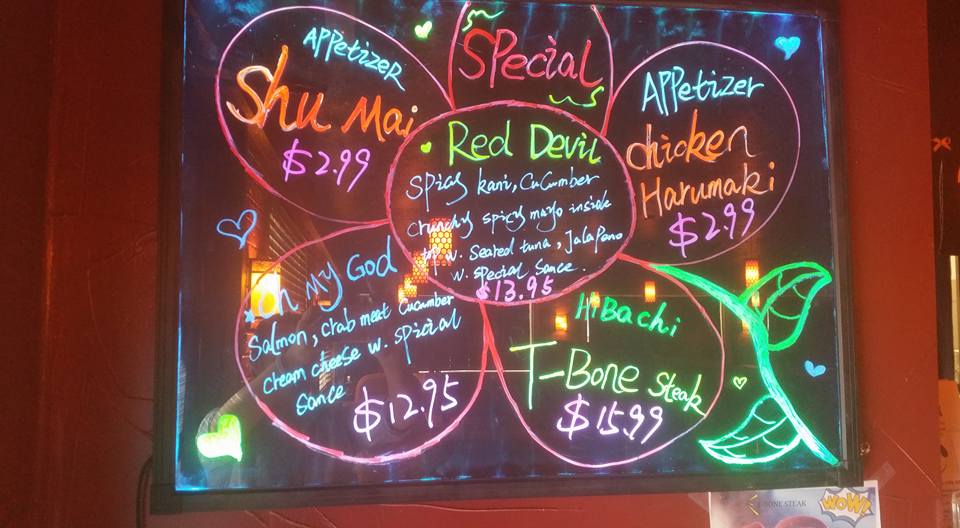 Special
Appetizer
Shu Mai
$2.99
Red Devil
Spicy kani, Cucumber
crunchy spicy mayo inside
top w. Seared tuna, Jalapeno
w. special Sauce.
$13.95
Appetizer
chicken
Harumaki
$2.99
oh My God
Salmon, crab meat Cucumber
cream cheese w. spicial
Sauce
$12.95
HiBachi
T-Bone Steak
$15.99
T-BONE STEAK
WOW!